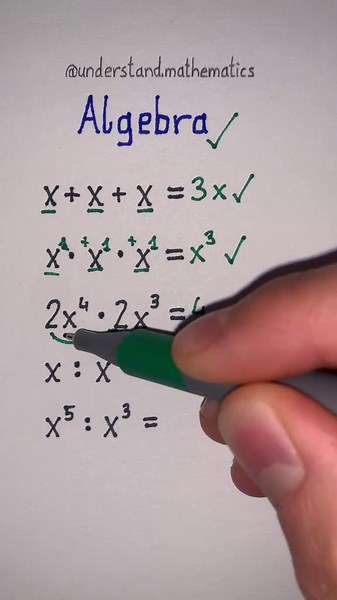 @understand.mathematics
Algebra ✓
x + x + x = 3x ✓
x¹ · ⁺x¹ · ⁺x¹ = x³ ✓
2x⁴ · 2x³ = 4
x : x
x⁵ : x³ =